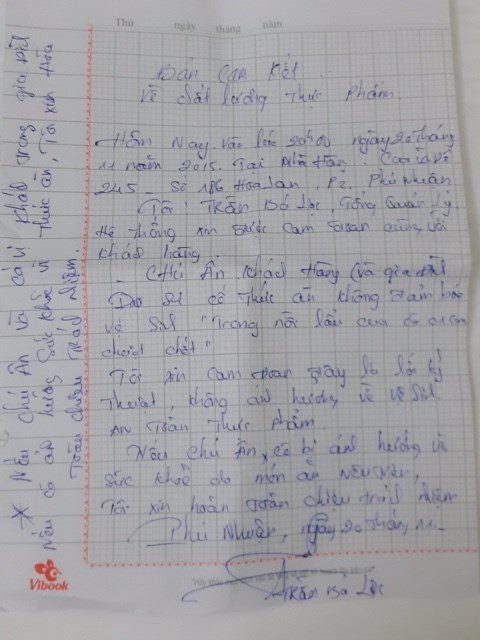 Thứ ngày tháng năm
Bản Cam Kết
Về chất lượng thực phẩm
Hôm Nay. Vào lúc 20h00 ngày 20 tháng
11 năm 2015. Tại Nhà Hàng.
245 - Số 186 Hoa Lan, P2, Phú Nhuận
Tôi: Trần Bá Lộc, Tổng Quản Lý
Hệ thống xin được cam đoan cùng với
khách hàng.
- Chú Ân khách Hàng (và gia đình
có thức ăn không đảm bảo
vệ sinh "Trong nồi lẩu của có con
chuột chết"
Tôi xin cam đoan đây là lỗi kỹ
thuật, không ảnh hưởng về vệ sinh
An toàn thực phẩm.
Nếu chú Ân, có bị ảnh hưởng về
sức khoẻ do món ăn nêu trên,
Tôi xin hoàn toàn chịu trách nhiệm
Phú Nhuận, ngày 20 tháng 11
Trần Bá Lộc
* Nếu chú Ân và các vị khách trong gia đình
nếu có ảnh hưởng sức khoẻ vì thức ăn, Tôi xin hứa
toàn chịu trách nhiệm.
Vibook